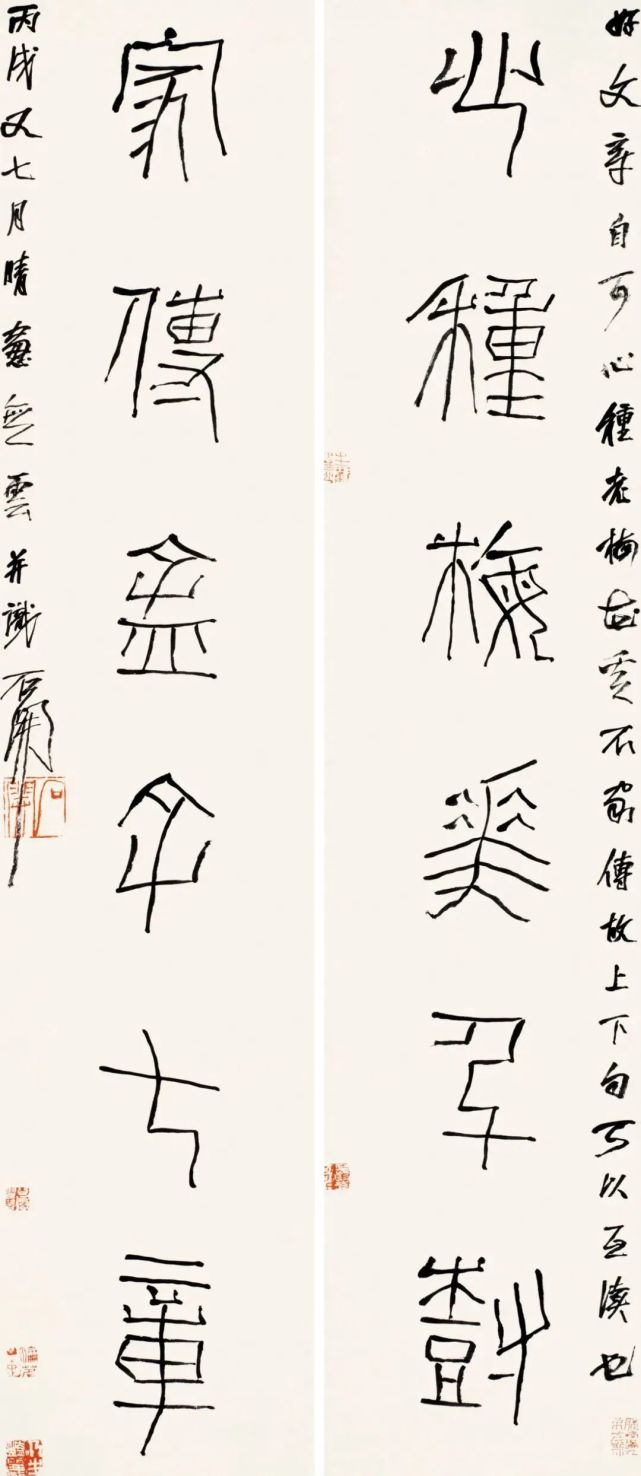 好文章自可心種老梅花豈不家傳故上下句可以互讀也
心種梅花千樹
家傳孟子七章
丙戌又七月晴窻無雲并識 石開